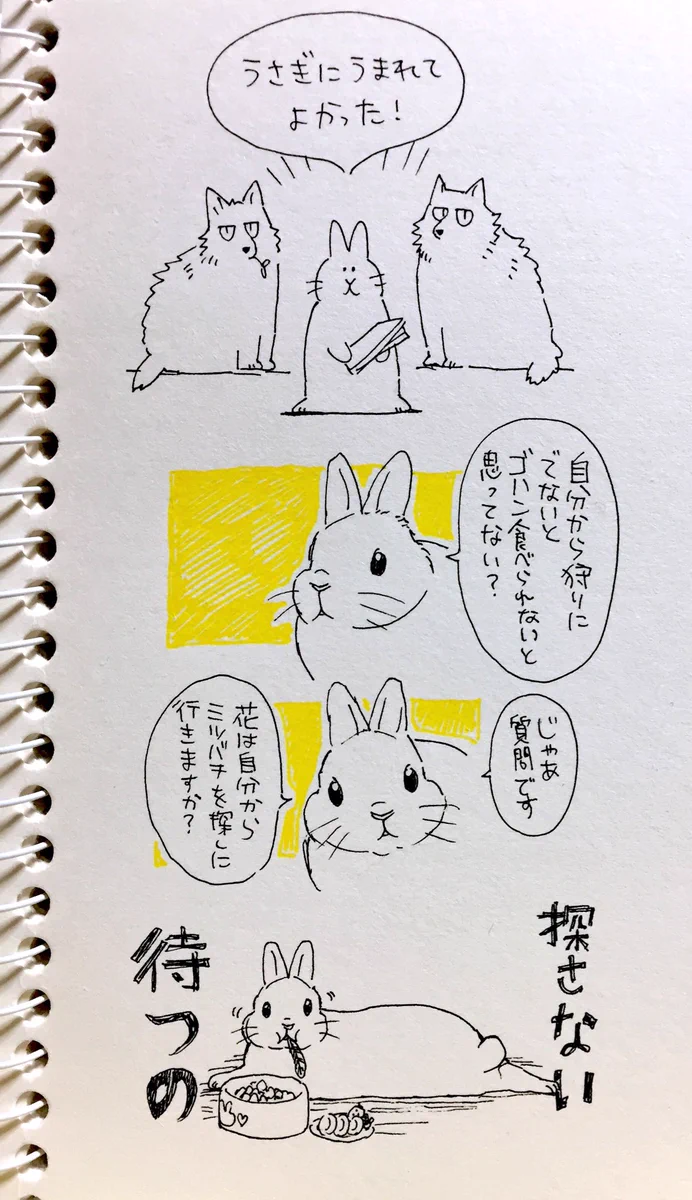 うさぎにうまれて
よかった！
自分から狩りに
でないと
ゴハン食べられないと
思ってない？
じゃあ
質問です
花は自分から
ミツバチを探しに
行きますか？
探さない
待つの